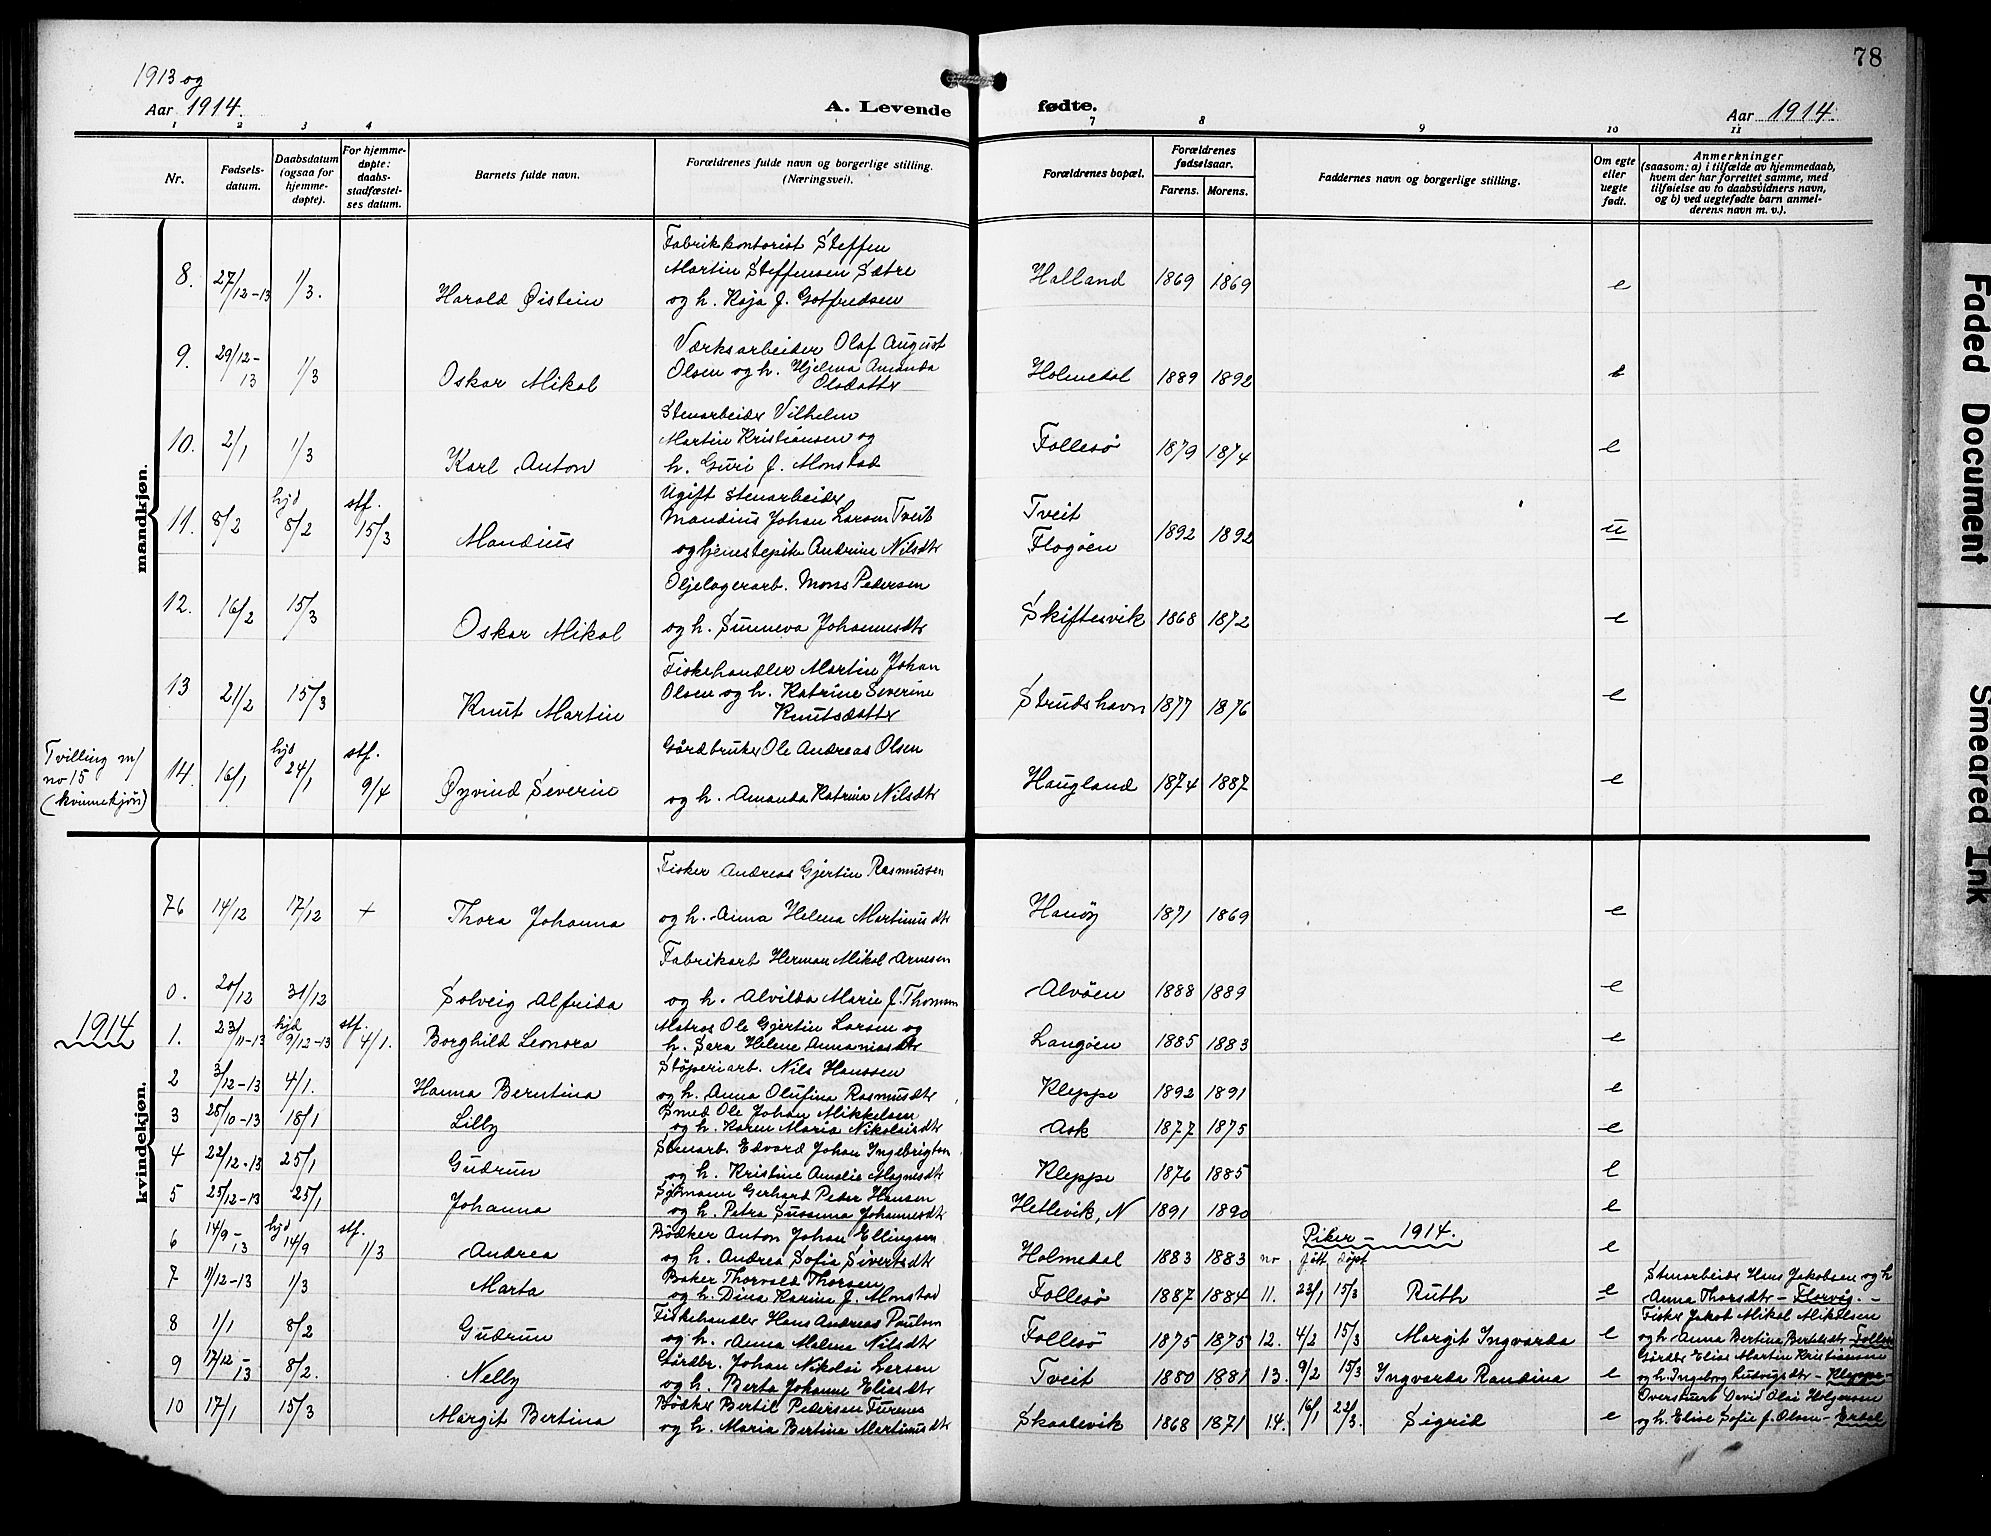 78
1913 og
Aar 1914.
A. Levende
fødte.
Aar 1914.
1 2 3 4 7 8 9 10 11
Nr.
Fødsels-
datum.
Daabsdatum
(ogsaa for
hjemme-
døpte).
For hjemme-
døpte:
daabs-
stadfæstel-
ses datum.
Barnets fulde navn.
Forældrenes fulde navn og borgerlige stilling.
(Næringsvei).
Forældrenes bopæl.
Forældrenes
fødselsaar.
Farens. Morens.
Faddernes navn og borgerlige stilling.
Om egte
eller
uegte
født.
Anmerkninger
(saasom: a) i tilfælde av hjemmedaab,
hvem der har forrettet samme, med
tilføielse av to daabsvidners navn,
og b) ved uegtefødte barn anmel-
derens navn m. v.).
mandkjøn.
Fabrikkontorist Steffen
Martin Steffensen Sætre
8. 27/12-13 1/3. Harald Øistein og h. Kaja f. Gotfredsen Halland 1869 1869 e
Værksarbeider Olaf August
9. 29/12-13 1/3 Oskar Mikal Olsen og h. Hjelma Amanda Holmedal 1889 1892 e
Olsdatter
Stenarbeider Vilhelm
Martin Kristiansen og
10. 2/1 1/3 Karl Anton h. Guri f. Monstad Follesø 1879 1874 e
Ugift stenarbeider
11. 8/2 hjd 8/2 stf. 15/3 Mandius Mandius Johan Larsen Tveit Tveit 1892 1892 u
og tjenestepike Andrina Nilsdtr Flogøen
Oljelagerarb. Mons Pedersen
12. 16/2 15/3 Oskar Mikal og h. Sunneva Johannesdtr Skiftesvik 1868 1872 e
Fiskehandler Martin Johan
13 21/2 15/3 Knut Martin Olsen og h. Katrine Severine Strudshavn 1877 1876 e
Knutsdatter
Tvilling m/
no 15
(kvinnekjøn)
Gårdbruker Ole Andreas Olsen
14. 16/1 hjd 24/1 stf. 9/4 Øyvind Severin og h. Amanda Katrina Nilsdtr Haugland 1874 1887 e
kvindekjøn.
Fisker Andreas Gjertin Rasmussen
76 14/12 17/12 + Thora Johanna og h. Anna Helena Martinusdtr Hanøy 1871 1869 e
Fabrikarb Herman Mikal Arnesen
0. 20/12 31/12 Solveig Alfrida og h. Alvilda Marie f. Thomsen Alvøen 1888 1889 e
1914
Matros Ole Gjertin Larsen og
1. 23/11-13 hjd 9/12-13 stf. 4/1. Borghild Leonora h. Sara Helene Annaniasdtr Langøen 1885 1883 e
Støperiarb. Nils Hanssen
2 3/12-13 4/1. Hanna Berntina og h. Anna Olufina Rasmusdtr Kleppe 1892 1891 e
Smed Ole Johan Mikkelsen
3 25/10-13 18/1 Lilly og h. Karen Maria Nikolaisdtr Ask 1877 1875 e
Stenarb. Edvard Johan Ingebrigtsen
4 22/12-13 25/1 Gudrun og h. Kristine Amalie Magnesdtr Kleppe 1876 1885 e
Sjømann Gerhard Peter Hansen
5 25/12-13 25/1 Johanna og h. Petra Susanna Johannesdtr Hetlevik, N 1891 1890 e
Bødker Anton Johan Ellingsen
6 14/9-13 hjd 14/9 stf. 1/3 Andrea og h. Andrea Sofia Sivertsdtr Holmedal 1883 1883 e
Piker – 1914.
no født døpt
Baker Thorvald Thorsen
7 11/12-13 1/3 Marta og h. Dina Karine f. Monstad Follesø 1887 1884
11. 23/1 15/3 Ruth e Stenarbeider Hans Jakobsen og h
Anna Thorsdtr – Florvig. –
Fiskehandler Hans Andreas Paulsen
8 1/1 8/2 Gudrun og h. Anna Malena Nilsdtr Follesø 1875 1875
12. 4/2 15/3 Margit Ingvarda e Fisker Jakob Mikal Mikalsen
og h. Anna Bertina Bertelsdtr –
Gårdbr. Johan Nikolai Larsen
9 17/12-13 8/2. Nelly og h. Berta Johanne Eliasdtr Tveit 1880 1881
13. 9/2 15/3 Ingvarda Randina e Gårdbr Elias Martin Kristiansen
og h. Ingeborg Ludvigsdtr – Kleppe –
Bødker Bertil Pedersen Turenes
10 17/1 15/3 Margit Bertina og h. Maria Bertina Martinusdtr Skaalevik 1868 1871
14. 16/1 22/3. Sigrid e David Olai Holgersen
og h. Elise Sofie f. Olsen – Erdal
Faded Document
Smeared Ink